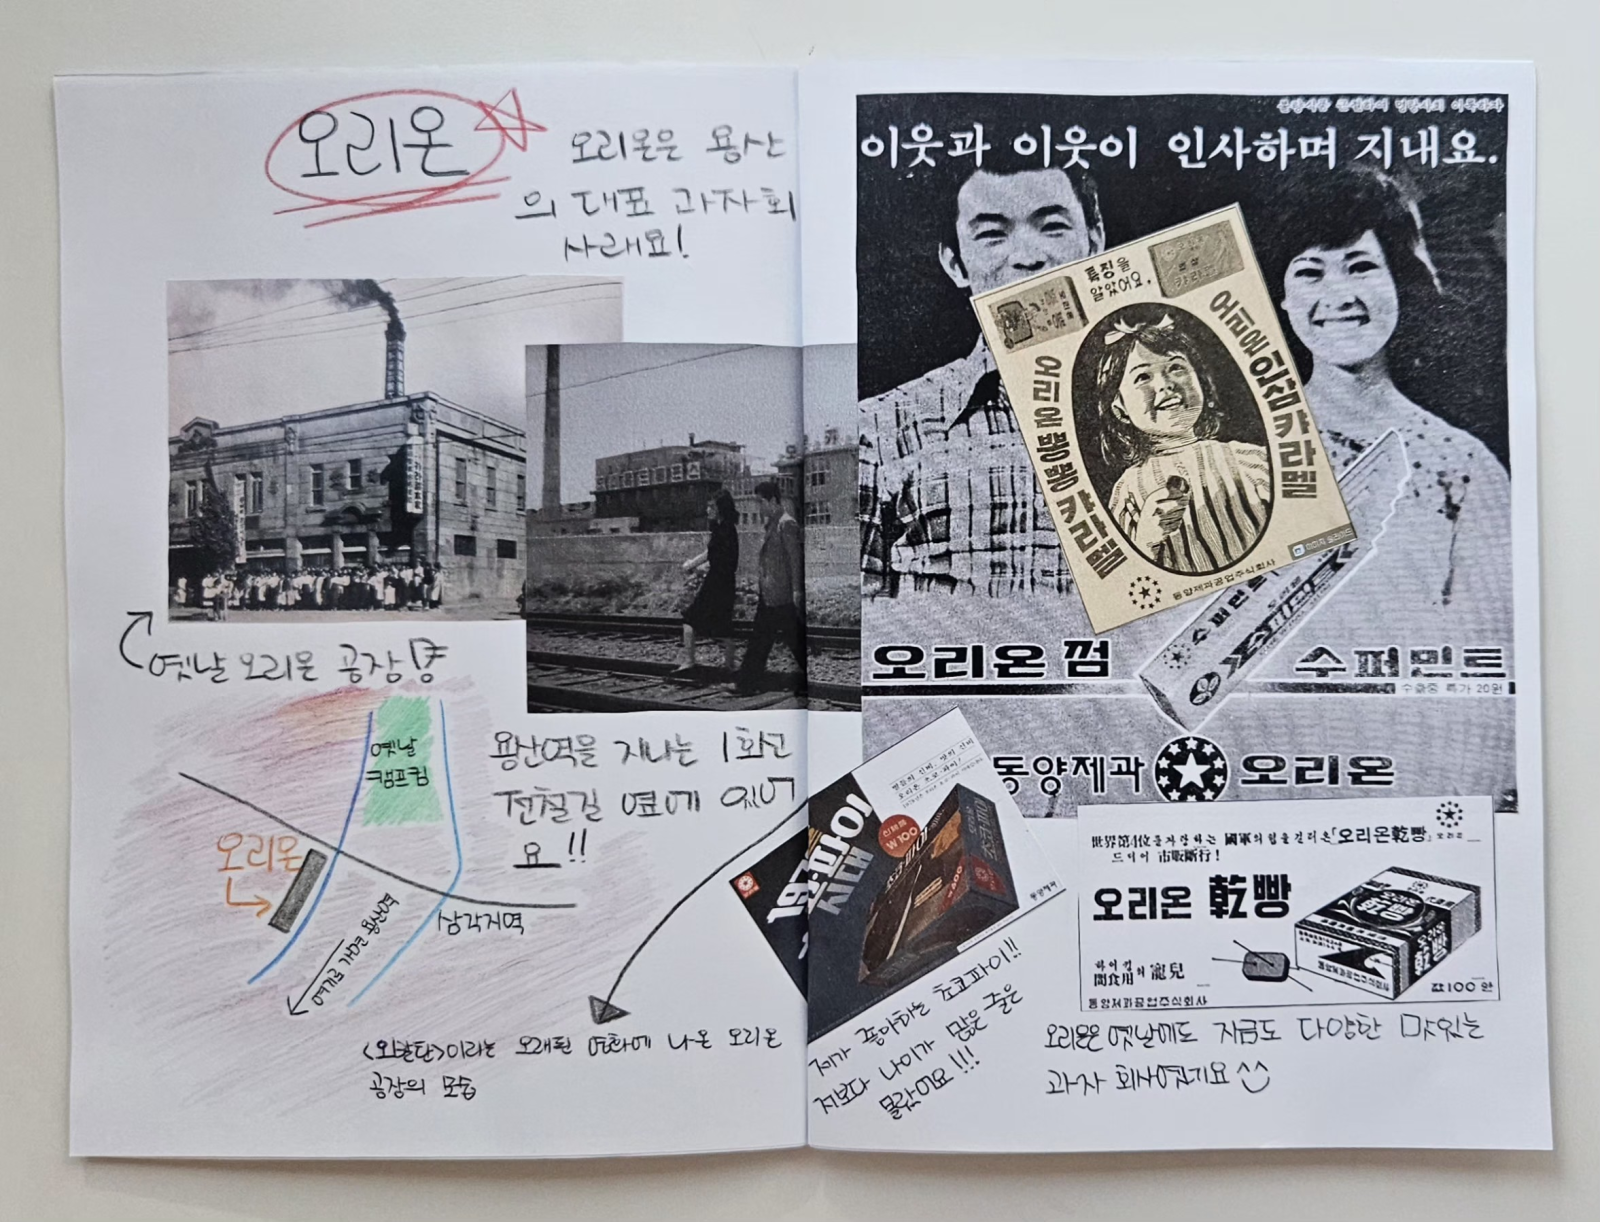 오리온
오리온은 용산
의 대표 과자회
사래요!
옛날 오리온 공장
옛날
캠프킴
오리온
삼각지역
여기로 가면 용산역
용산역을 지나는 1호선
전철길 옆에 있어
요!!
<외할탄>이라는 오래된 영화에 나온 오리온
공장의 모습
이웃과 이웃이 인사하며 지내요.
특징을
알았어요.
오리온 뽕뽕 캬라멜
어린이인삼캬라멜
동양제과공업주식회사
수퍼민트
오리온 껌
수퍼민트
수출용 특가 20원
동양제과
오리온
초코파이
시대
신제품
₩100
초코파이
동양제과
제가 좋아하는 초코파이!!
저보다 나이가 많은 줄은
몰랐어요!!!
世界第4位를자랑하는 國軍의힘을길러온「오리온乾빵」
드디어 市販斷行!
오리온
오리온 乾빵
하이킹
間食用의 寵兒
乾빵
값100원
동양제과공업주식회사
오리온은 옛날에도 지금도 다양한 맛있는
과자 회사였군요^^